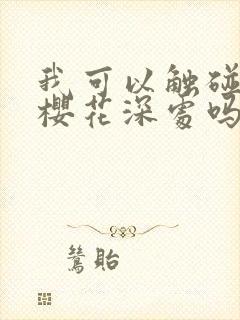 我可以触碰
樱花深处吗
鸶贻